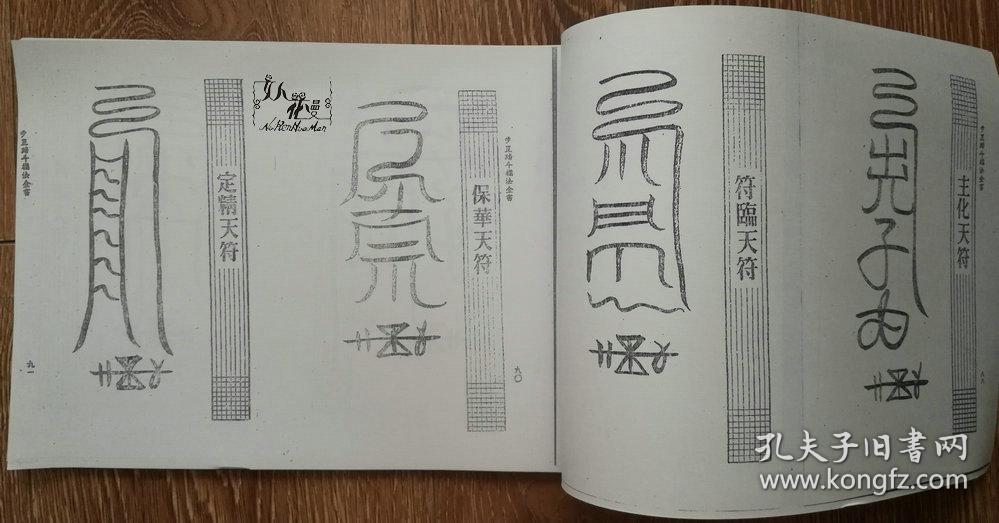 主化天符
八八
符臨天符
步罡踏斗攝法全書
保華天符
九〇
定精天符
步罡踏斗攝法全書
九一
女人花曼
Nu Ren Hua Man
孔夫子旧书网
www.kongfz.com